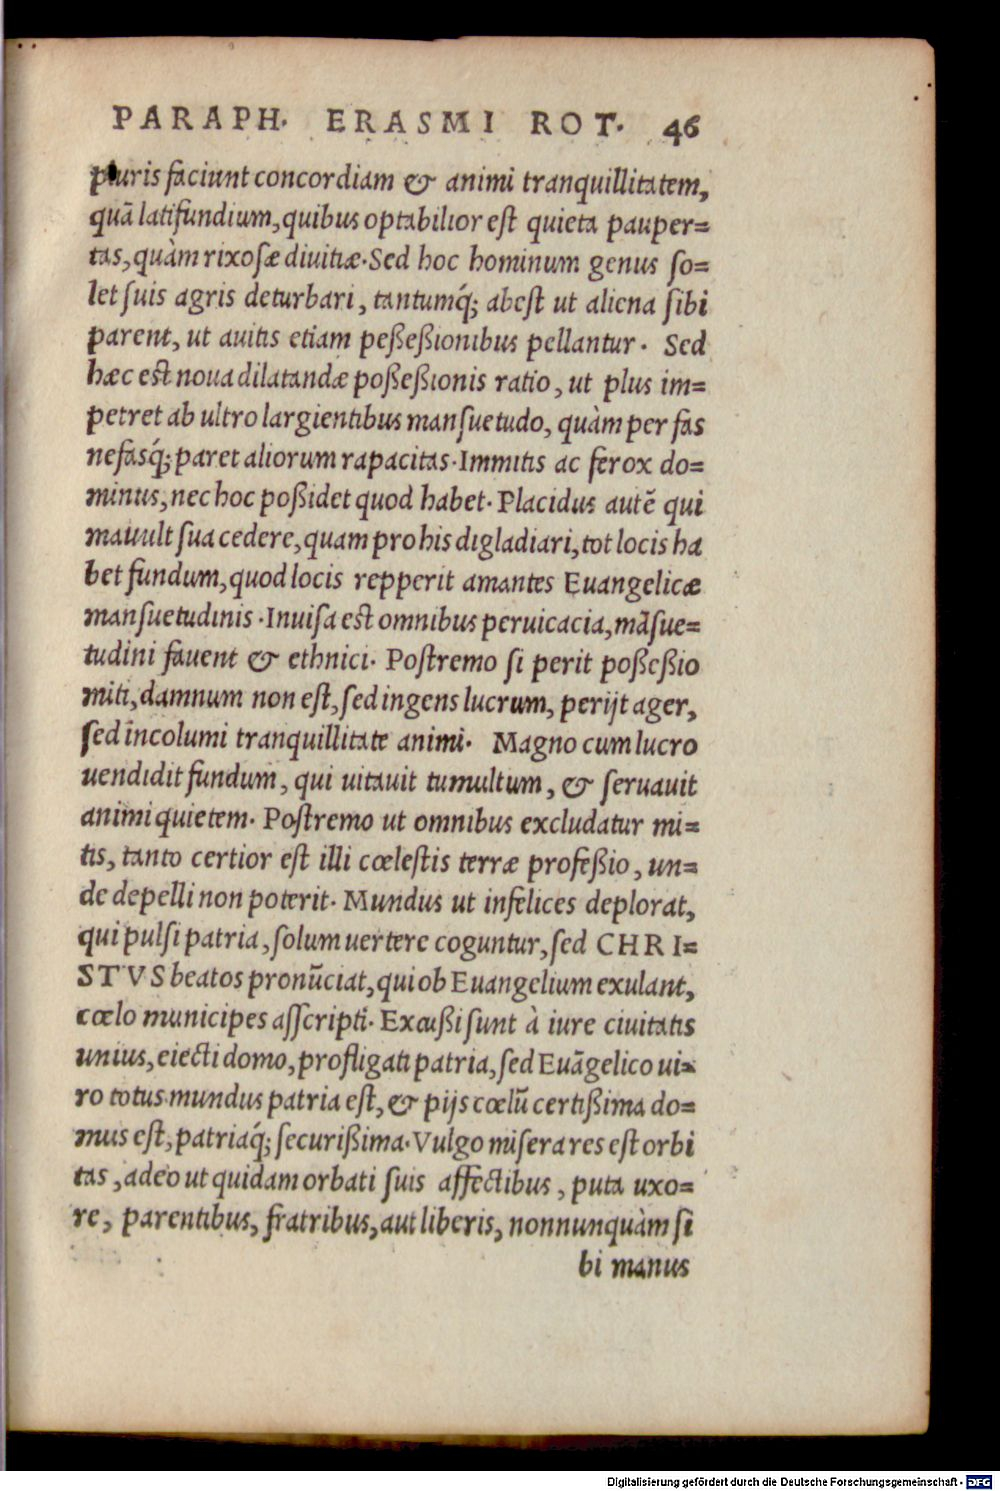 PARAPH. ERASMI ROT. 46
pluris faciunt concordiam & animi tranquillitatem,
quā latifundium, quibus optabilior est quieta pauper=
tas, quàm rixosæ diuitiæ. Sed hoc hominum genus so=
let suis agris deturbari, tantumq́; abest ut aliena sibi
parent, ut auitis etiam peßeßionibus pellantur. Sed
hæc est noua dilatandæ poßeßionis ratio, ut plus im=
petret ab ultro largientibus mansuetudo, quàm per fas
nefasq́; paret aliorum rapacitas. Immitis ac ferox do=
minus, nec hoc poßidet quod habet. Placidus autē qui
mauult sua cedere, quam pro his digladiari, tot locis ha
bet fundum, quod locis repperit amantes Euangelicæ
mansuetudinis. Inuisa est omnibus peruicacia, māsue=
tudini fauent & ethnici. Postremo si perit poßeßio
miti, damnum non est, sed ingens lucrum, perijt ager,
sed incolumi tranquillitate animi. Magno cum lucro
uendidit fundum, qui uitauit tumultum, & seruauit
animi quietem. Postremo ut omnibus excludatur mi=
tis, tanto certior est illi cœlestis terræ profeßio, un=
de depelli non poterit. Mundus ut infelices deplorat,
qui pulsi patria, solum uertere coguntur, sed CHRI=
STVS beatos pronūciat, qui ob Euangelium exulant,
cœlo municipes asscripti. Excußi sunt à iure ciuitatis
unius, eiecti domo, profligati patria, sed Euāgelico ui=
ro totus mundus patria est, & pijs cœlū certißima do=
mus est, patriaq́; securißima. Vulgo misera res est orbi
tas, adeo ut quidam orbati suis affectibus, puta uxo=
re, parentibus, fratribus, aut liberis, nonnunquàm si
bi manus
Digitalisierung gefördert durch die Deutsche Forschungsgemeinschaft - DFG